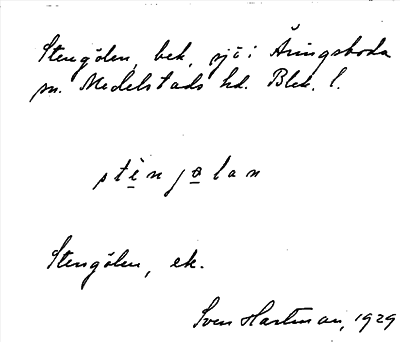 Stengölen, bek. sjö i Åringsboda
sn. Medelstads hd. Blek. l.
stèn jalan
Stengölen, ek.
Sven Hartman, 1929